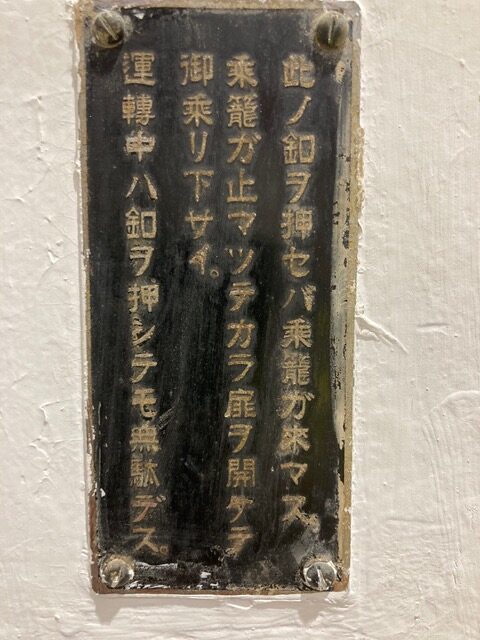 此ノ釦ヲ押セバ乘籠ガ來マス。
乘籠ガ止マツテカラ扉ヲ開ケテ
御乘リ下サイ。
運轉中ハ釦ヲ押シテモ無駄デス。